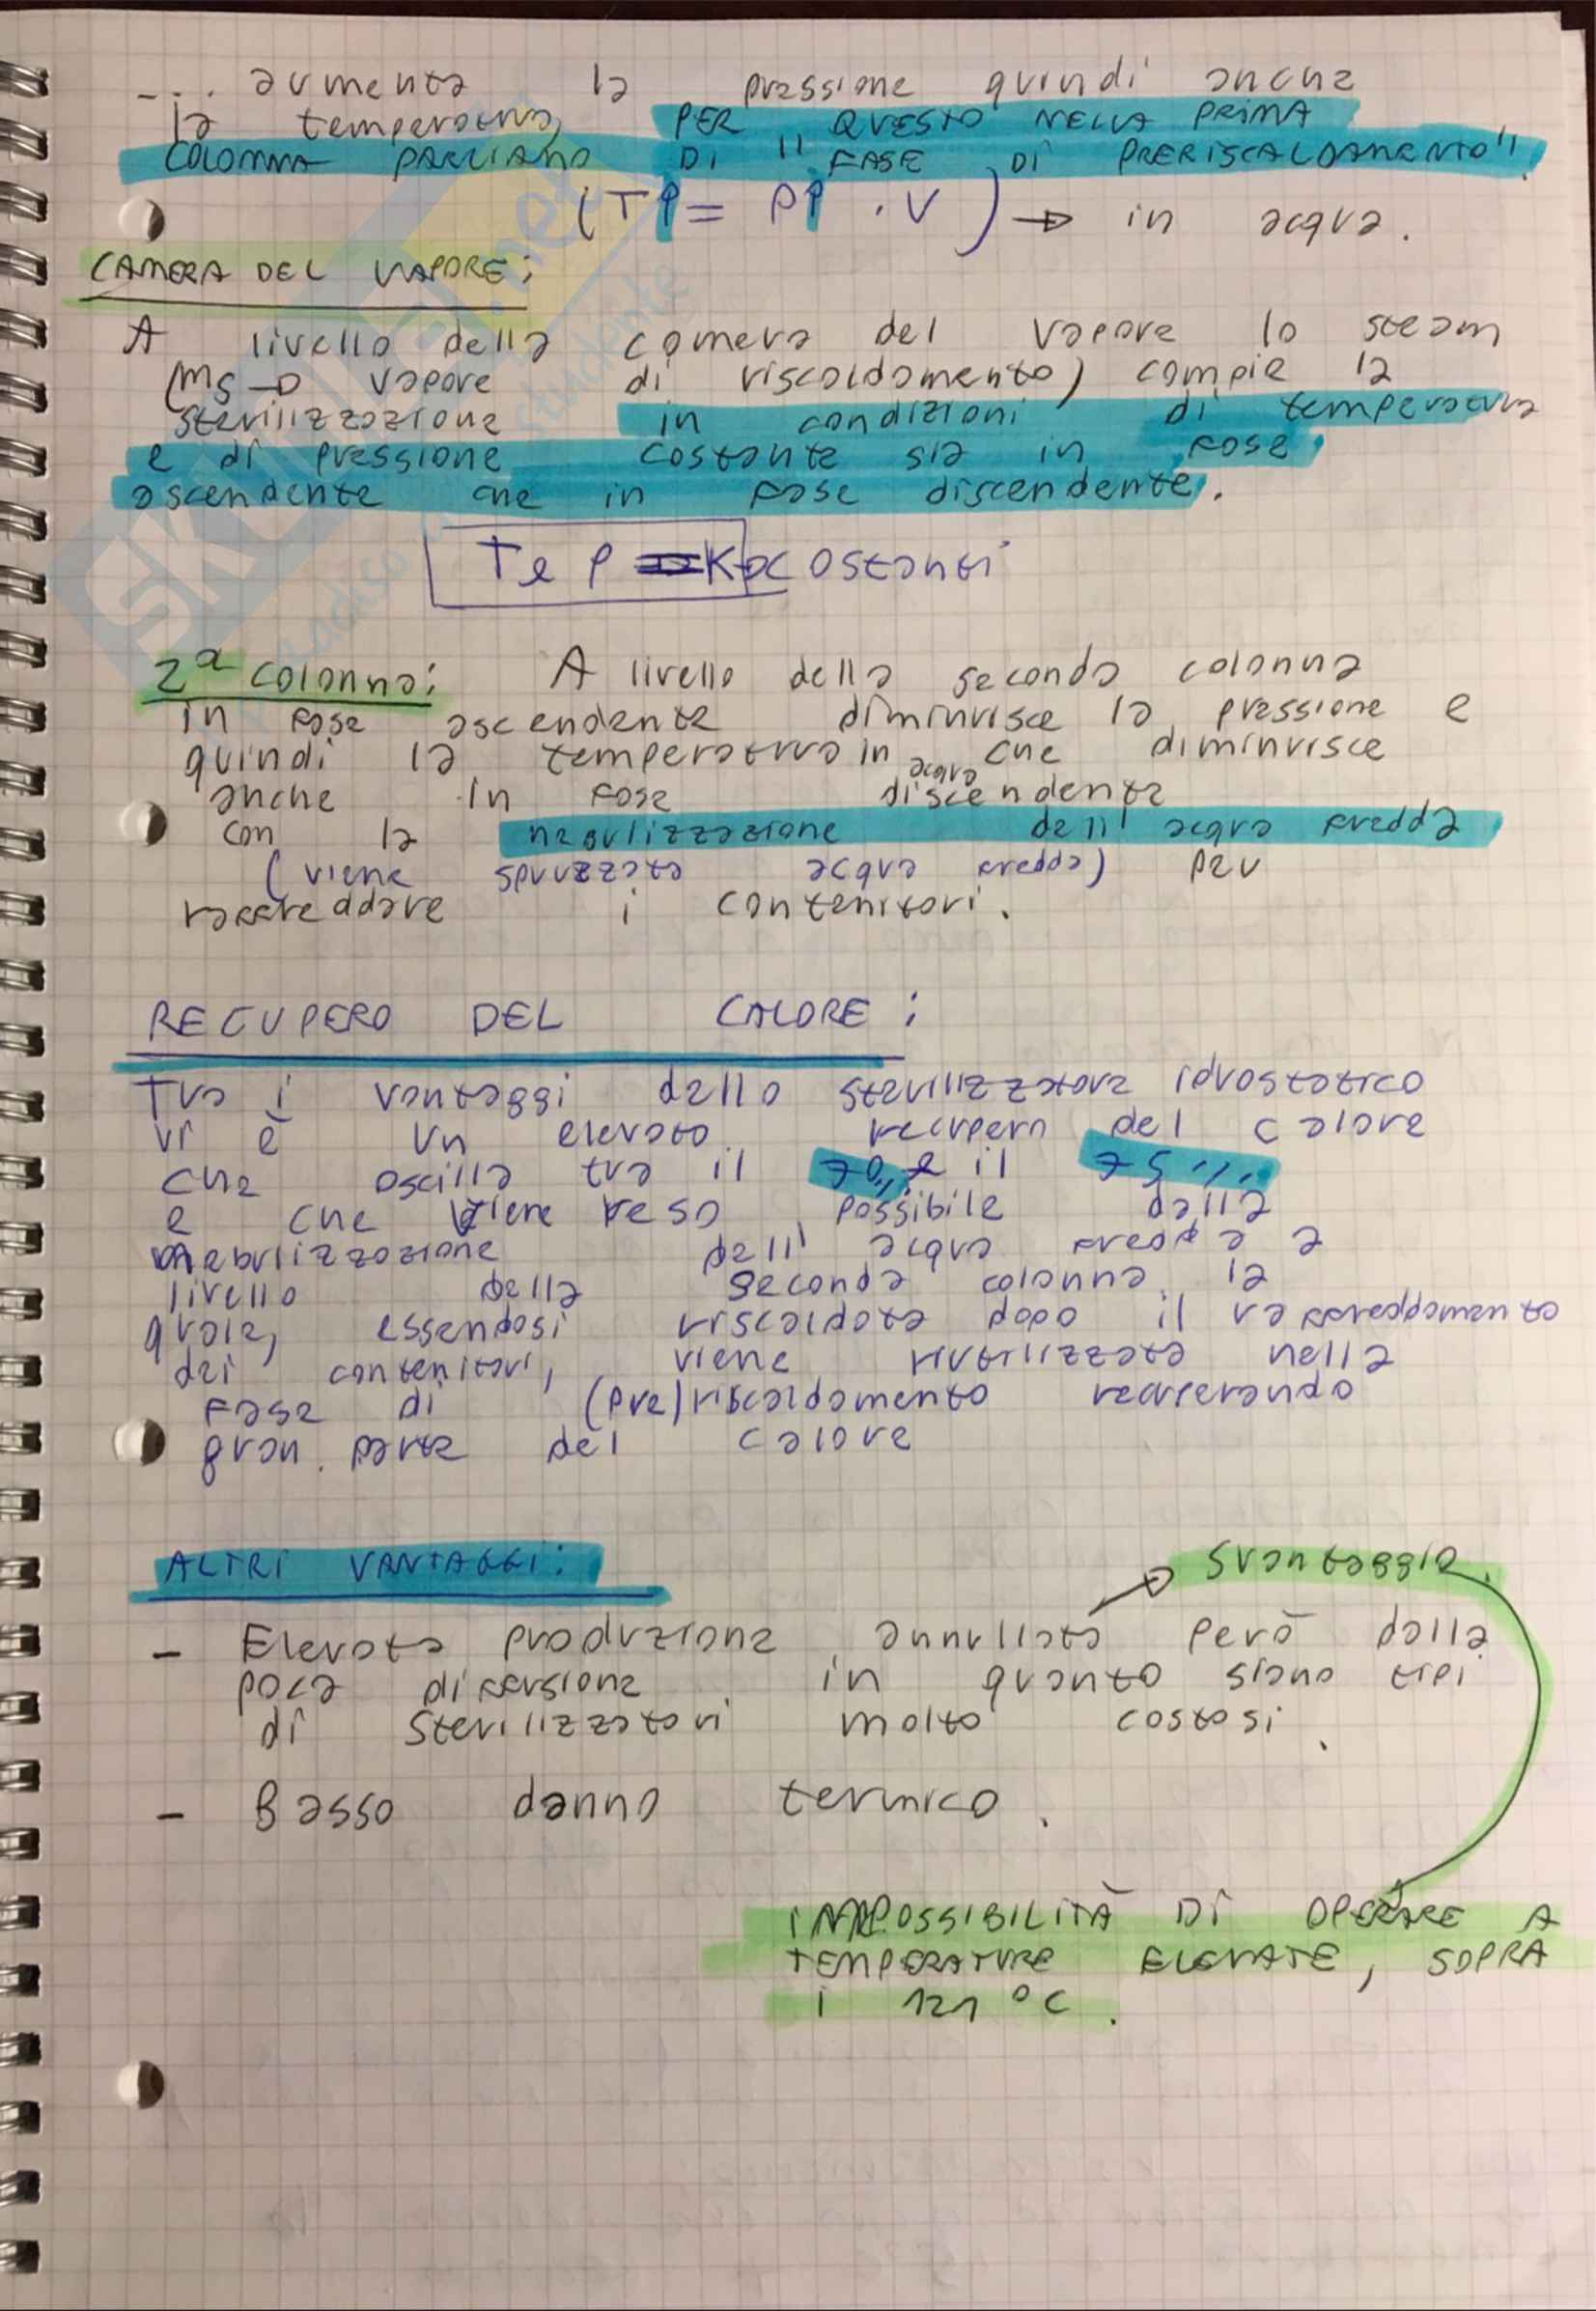 ... aumenta la pressione quindi anche
la temperatura, PER QUESTO NELLA PRIMA
COLONNA PARLIAMO DI "FASE DI PRERISCALDAMENTO".
(T↑ = P↑ · V) → in acqua.
CAMERA DEL VAPORE:
A livello della camera del vapore lo steam
(ms → vapore di riscaldamento) compie la
sterilizzazione in condizioni di temperatura
e di pressione costante sia in fase
ascendente che in fase discendente.
T e P costanti
2ª colonna: A livello della seconda colonna
in fase ascendente diminuisce la pressione e
quindi la temperatura in acqua che diminuisce
anche in fase discendente
con la nebulizzazione dell'acqua fredda
(viene spruzzata acqua fredda) per
raffreddare i contenitori.
RECUPERO DEL CALORE:
Tra i vantaggi dello sterilizzatore idrostatico
vi è un elevato recupero del calore
che oscilla tra il 70% e il 75%
e che viene reso possibile dalla
nebulizzazione dell'acqua fredda a
livello della seconda colonna, la
quale, essendosi riscaldata dopo il raffreddamento
dei contenitori, viene riutilizzata nella
fase di (pre)riscaldamento recuperando
gran parte del calore
ALTRI VANTAGGI:
svantaggio
- Elevata produzione annullata però dalla
poca diffusione in quanto siano tipi
di sterilizzatori molto costosi.
- Basso danno termico.
IMPOSSIBILITÀ DI OPERARE A
TEMPERATURE ELEVATE, SOPRA
i 121 °C.
SKUOLA.net